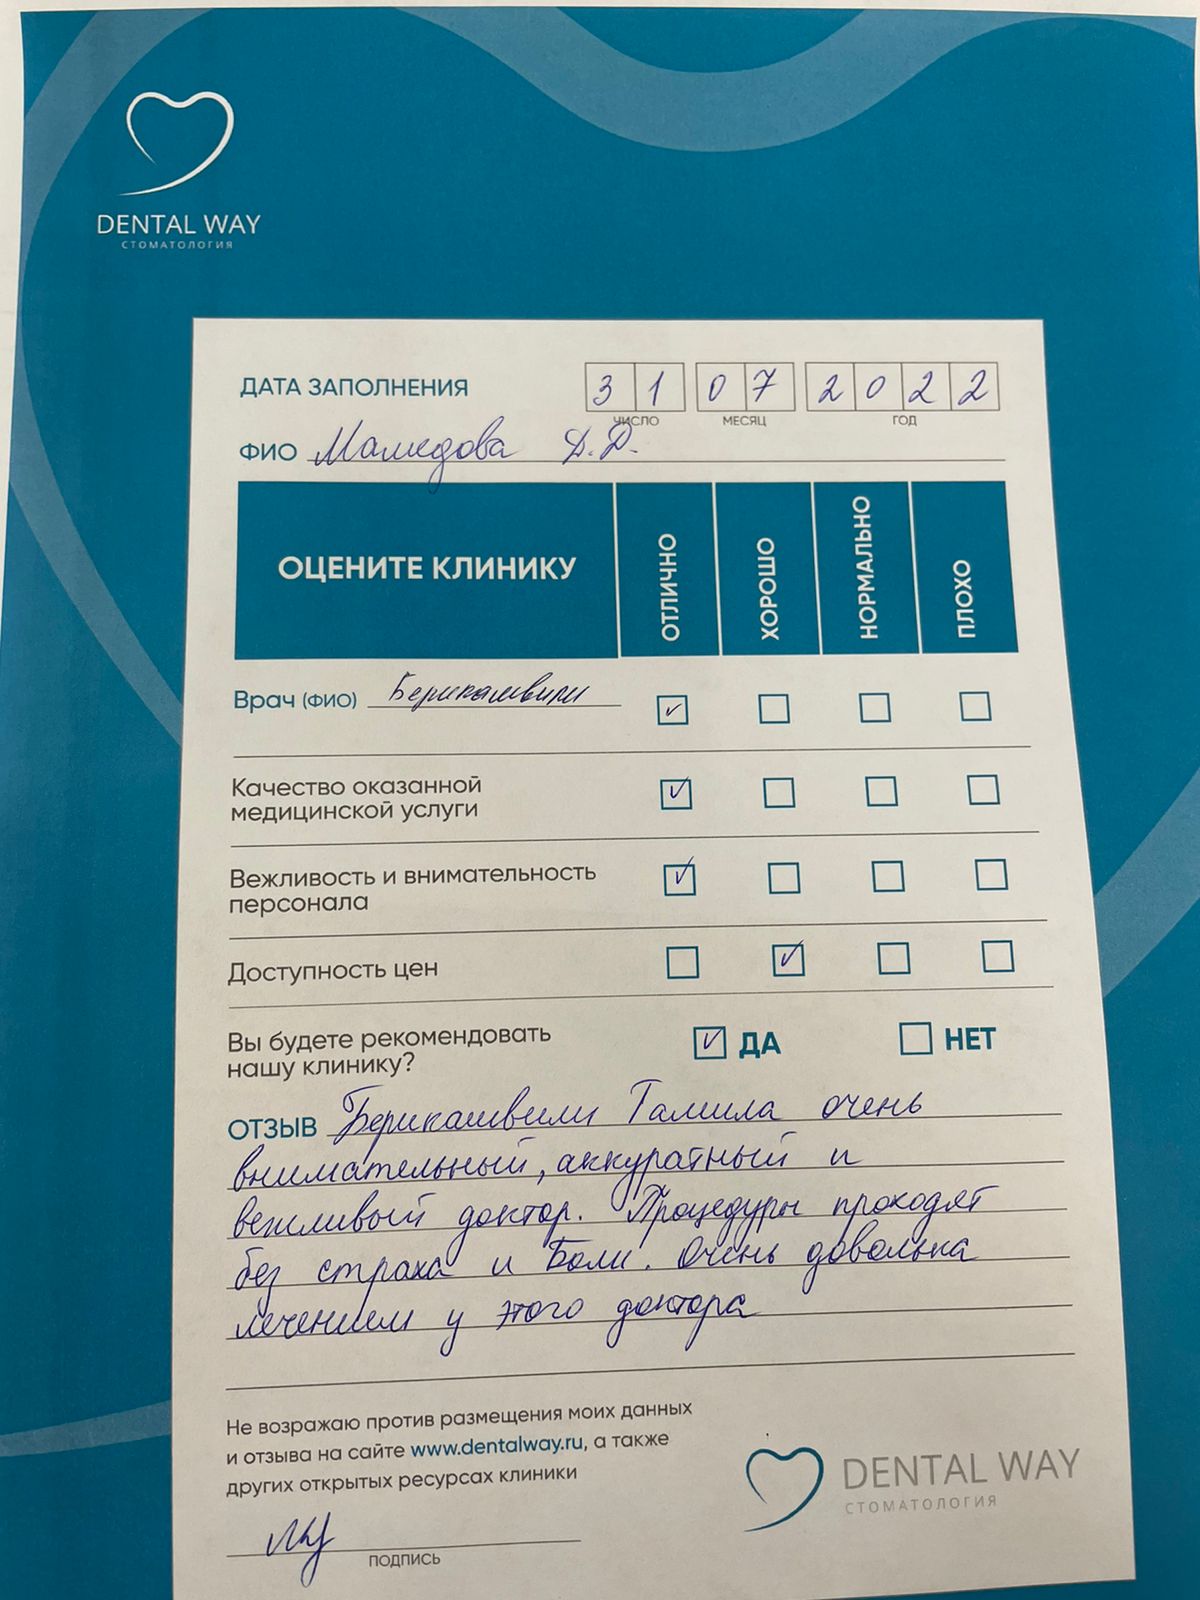 DENTAL WAY
СТОМАТОЛОГИЯ
ДАТА ЗАПОЛНЕНИЯ 31 07 2022
ЧИСЛО МЕСЯЦ ГОД
ФИО Мамедова Д.Д.
ОЦЕНИТЕ КЛИНИКУ ОТЛИЧНО ХОРОШО НОРМАЛЬНО ПЛОХО
Врач (ФИО) Берикашвили
Качество оказанной
медицинской услуги
Вежливость и внимательность
персонала
Доступность цен
Вы будете рекомендовать
нашу клинику?
ДА НЕТ
ОТЗЫВ Берикашвили Тамила очень
внимательный, аккуратный и
вежливый доктор. Процедуры проходят
без страха и Боли. Очень довольна
лечением у этого доктора
Не возражаю против размещения моих данных
и отзыва на сайте www.dentalway.ru, а также
других открытых ресурсах клиники
ПОДПИСЬ
DENTAL WAY
СТОМАТОЛОГИЯ